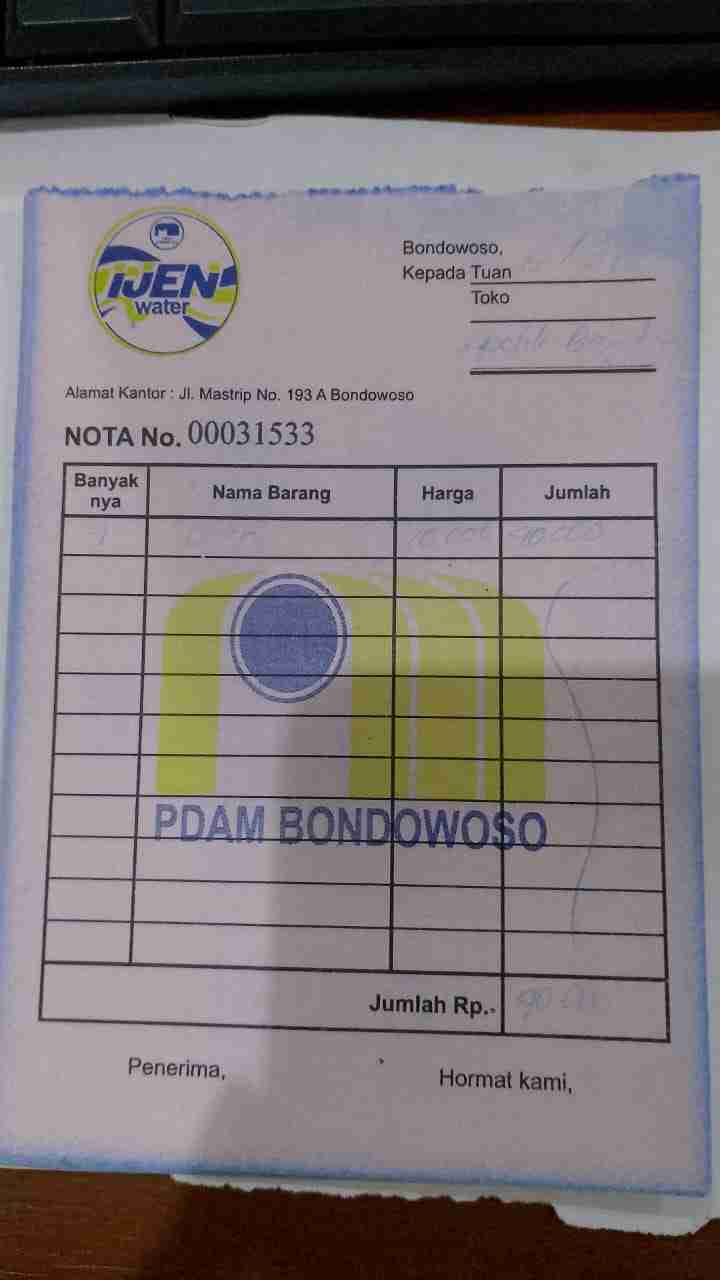 IJEN
water
Bondowoso,
Kepada Tuan
Toko
Alamat Kantor : Jl. Mastrip No. 193 A Bondowoso
NOTA No. 00031533
Banyak nya Nama Barang Harga Jumlah
PDAM BONDOWOSO
Jumlah Rp.-
Penerima,
Hormat kami,